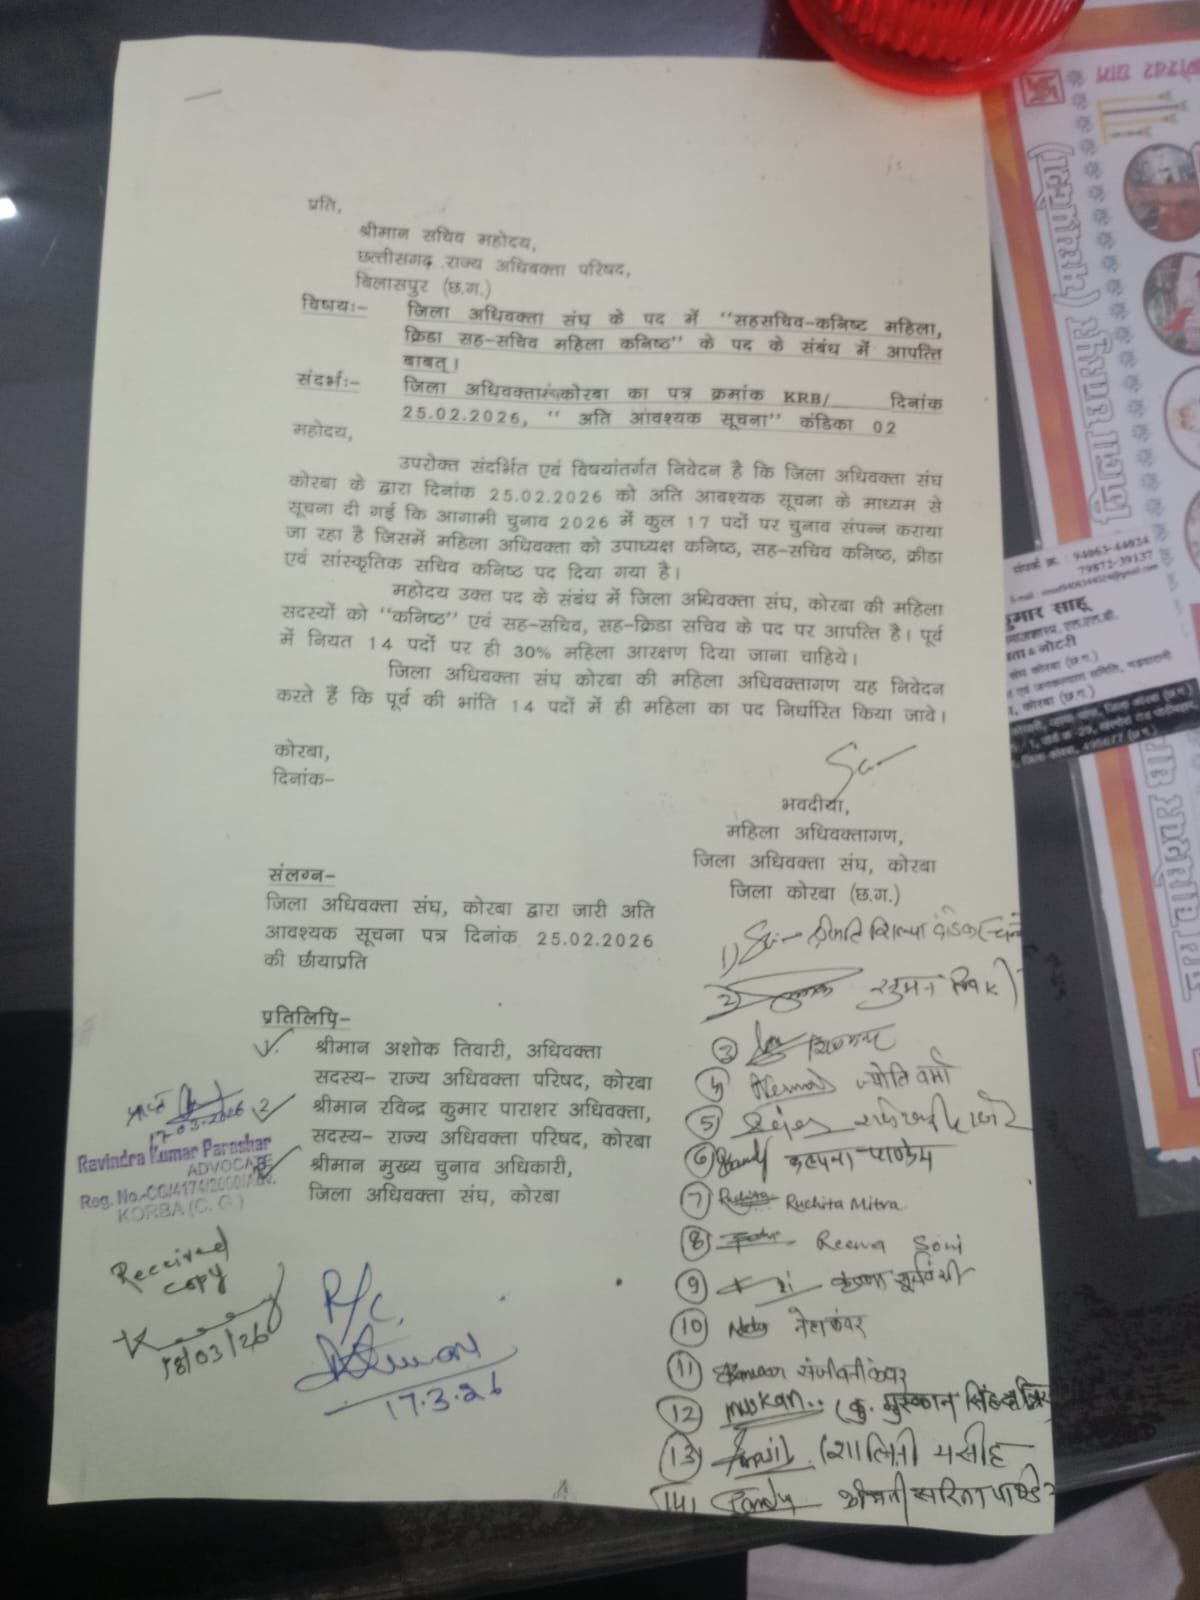 प्रति,
श्रीमान सचिव महोदय,
छत्तीसगढ़ राज्य अधिवक्ता परिषद,
बिलासपुर (छ.ग.)
विषयः- जिला अधिवक्ता संघ के पद में "सहसचिव-कनिष्ट महिला,
क्रिडा सह-सचिव महिला कनिष्ठ" के पद के संबंध में आपत्ति
बाबत्।
संदर्भः- जिला अधिवक्ता कोरबा का पत्र क्रमांक KRB/ दिनांक
25.02.2026, " अति आवश्यक सूचना" कंडिका 02
महोदय,
उपरोक्त संदर्भित एवं विषयांतर्गत निवेदन है कि जिला अधिवक्ता संघ
कोरबा के द्वारा दिनांक 25.02.2026 को अति आवश्यक सूचना के माध्यम से
सूचना दी गई कि आगामी चुनाव 2026 में कुल 17 पदों पर चुनाव संपन्न कराया
जा रहा है जिसमें महिला अधिवक्ता को उपाध्यक्ष कनिष्ठ, सह-सचिव कनिष्ठ, क्रीडा
एवं सांस्कृतिक सचिव कनिष्ठ पद दिया गया है।
महोदय उक्त पद के संबंध में जिला अधिवक्ता संघ, कोरबा की महिला
सदस्यों को "कनिष्ठ" एवं सह-सचिव, सह-क्रिडा सचिव के पद पर आपत्ति है। पूर्व
में नियत 14 पदों पर ही 30% महिला आरक्षण दिया जाना चाहिये।
जिला अधिवक्ता संघ कोरबा की महिला अधिवक्तागण यह निवेदन
करते हैं कि पूर्व की भांति 14 पदों में ही महिला का पद निर्धारित किया जावे।
कोरबा,
दिनांक-
भवदीया,
महिला अधिवक्तागण,
जिला अधिवक्ता संघ, कोरबा
जिला कोरबा (छ.ग.)
संलग्न-
जिला अधिवक्ता संघ, कोरबा द्वारा जारी अति
आवश्यक सूचना पत्र दिनांक 25.02.2026
की छायाप्रति
प्रतिलिपि-
1. श्रीमान अशोक तिवारी, अधिवक्ता
सदस्य- राज्य अधिवक्ता परिषद, कोरबा
2 श्रीमान रविन्द्र कुमार पाराशर अधिवक्ता,
सदस्य- राज्य अधिवक्ता परिषद, कोरबा
श्रीमान मुख्य चुनाव अधिकारी,
जिला अधिवक्ता संघ, कोरबा
17-03-2026
Ravindra Kumar Parashar
ADVOCATE
Reg. No.-CG/4174/2000/Adv.
KORBA (C. G.)
Received
copy
18/03/26
R/C
17.3.26
1)
2)
3
4 ज्योति वर्मा
5
6 कल्पना पाण्डेय
7 Ruchita Ruchita Mitra
8 Reema Soni
9 कृष्णा सूर्यवंशी
10 Neha नेहा कंवर
11 संजीवनी कंवर
12 Muskan.. (कु. मुस्कान सिंह
13 (शालिनी मसीह
14) श्रीमती सरिता पाण्डे
संपर्क क्र. : 94063-44034
79872-39137
कुमार साहू
& नोटरी